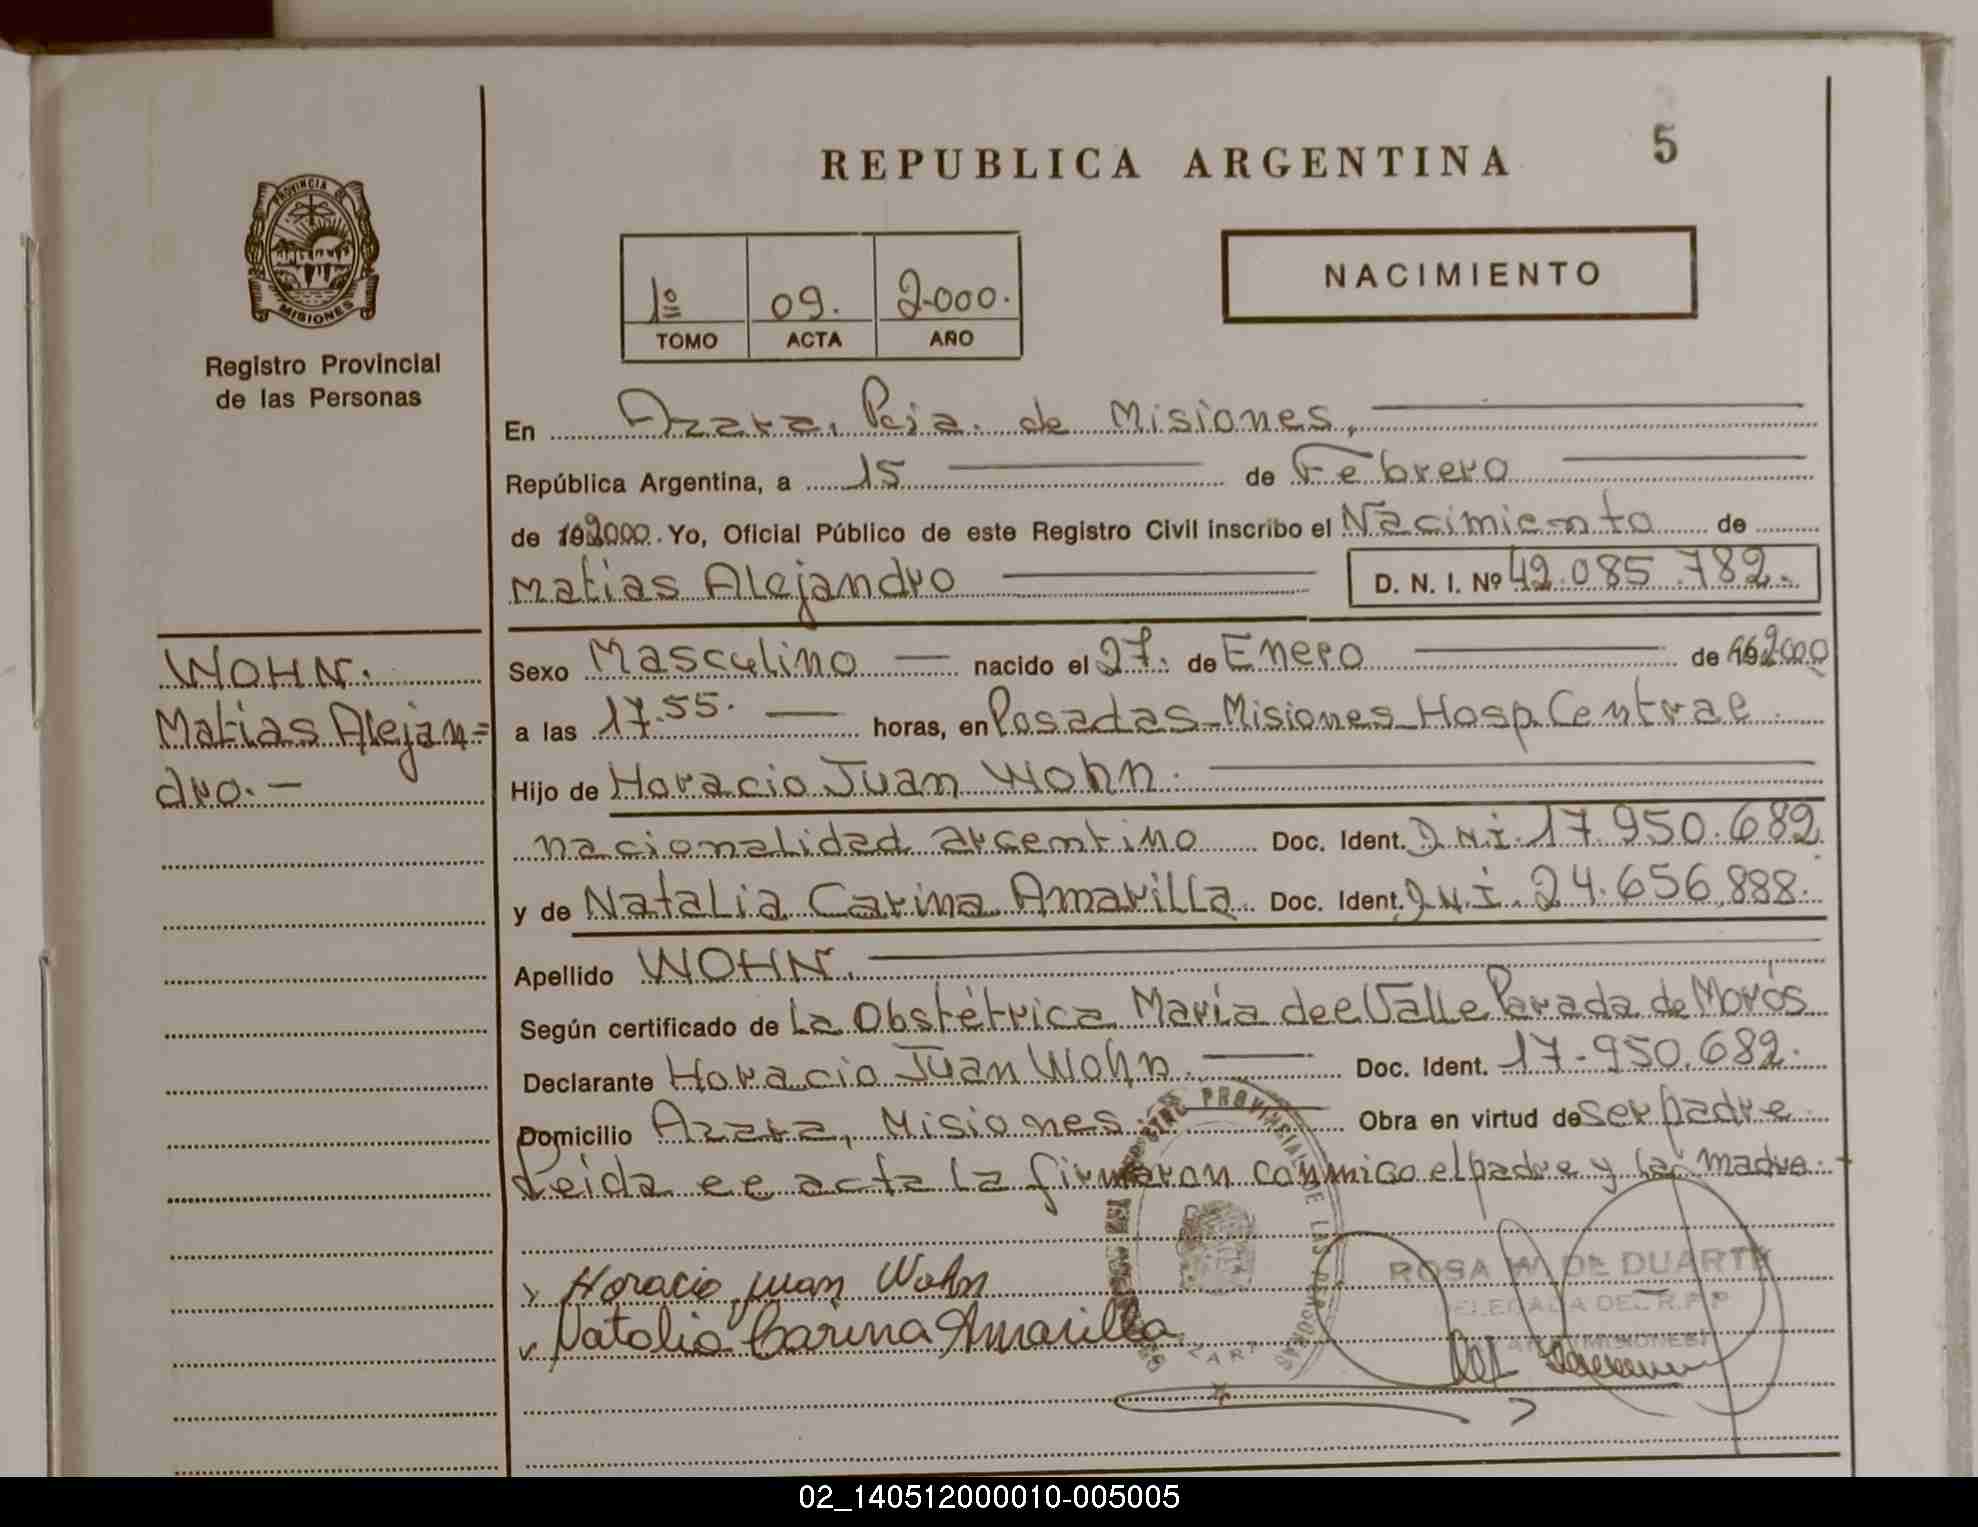 REPUBLICA ARGENTINA
5
PROVINCIA DE
MISIONES
Registro Provincial
de las Personas
1º 09. 2000.
TOMO ACTA AÑO
NACIMIENTO
En Azara, Pcia. de Misiones,
República Argentina, a 15 de Febrero
de 192000. Yo, Oficial Público de este Registro Civil inscribo el Nacimiento de
Matias Alejandro D. N. I. Nº 42.085.782.
WOHN.
Matias Alejan=
dro.-
Sexo Masculino nacido el 27. de Enero de 192000
a las 17.55. horas, en Posadas-Misiones-Hosp Central
Hijo de Horacio Juan Wohn.
nacionalidad argentino Doc. Ident. D.N.I. 17.950.682
y de Natalia Carina Amarilla Doc. Ident. D.N.I. 24.656.888.
Apellido WOHN.
Según certificado de La Obstétrica María del Valle Parada de Morós
Declarante Horacio Juan Wohn. Doc. Ident. 17.950.682.
Domicilio Azara, Misiones Obra en virtud de ser padre
Leida el acta la firmaron conmigo el padre y la madre.
Horacio juan Wohn
Natalia Carina Amarilla
PROVINCIAL DE LAS PERSONAS
ROSA W. DE DUARTE
DELEGADA DEL R.P.P
(MISIONES)
02_140512000010-005005